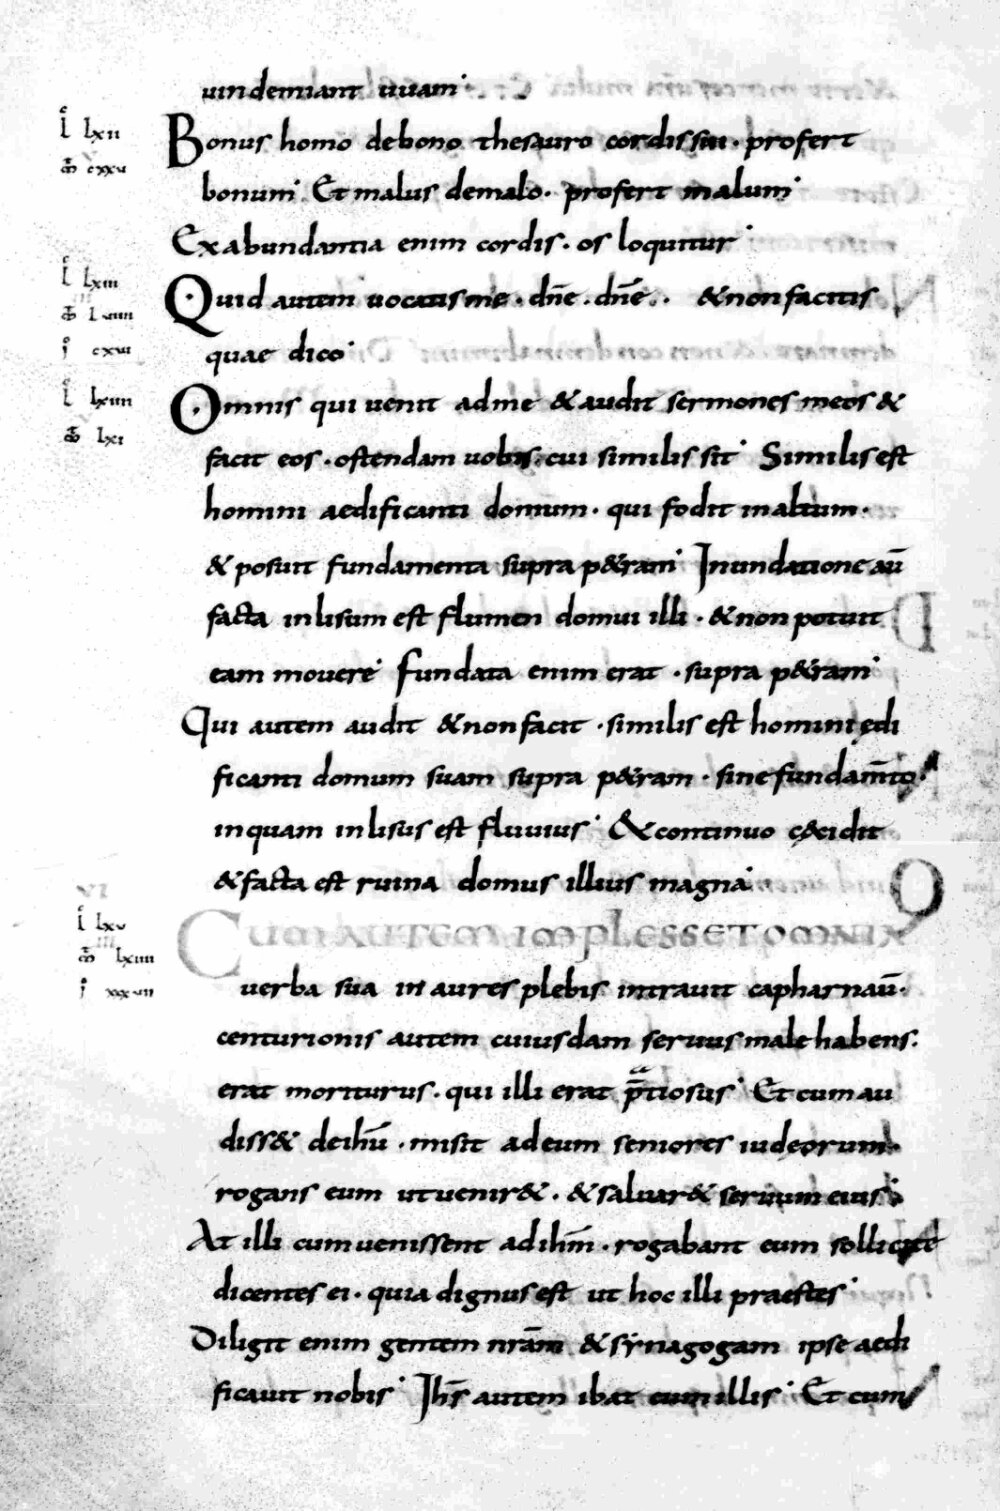 uindemiant uuam
L lxii
Bonus homo debono thesauro cordis sui · profert
m cxxv
bonum Et malus demalo · profert malum
Exabundantia enim cordis · os loquitur
L lxiii
Quid autem uocatis me · dn̄e · dn̄e · &non facitis
quae dico
L lxiiii
Omnis qui uenit adme &audit sermones meos &
m lxi
facit eos · ostendam uobis cui similis sit Similis est
homini aedificanti domum · qui fodit inaltum ·
&posuit fundamenta supra p&ram Inundatione aū
facta inlisum est flumen domui illi · &non potuit
eam mouere Fundata enim erat · supra p&ram
Qui autem audit &non facit · similis est homini ędi
ficanti domum suam supra p&ram · sine fundam̄to
inquam inlisus est fluuius &continuo c&cidit
&facta est ruina domus illius magna
VI
L lxv
CUM AUTEM IMPLESSET OMNIA
m lxiiii
uerba sua in aures plebis intrauit capharnaū ·
centurionis autem cuiusdam seruus male habens ·
erat moriturus · qui illi erat p̄tiosus Et cum au
diss& deihū · misit adeum seniores iudeorum ·
rogans eum utuenir& · &saluar& seruum eius
At illi cumuenissent adihm̄ · rogabant eum sollicite
dicentes ei · quia dignus est ut hoc illi praestes
Diligit enim gentem nr̄am &synagogam ipse aedi
ficauit nobis Ihs̄ autem ibat cum illis Et cum